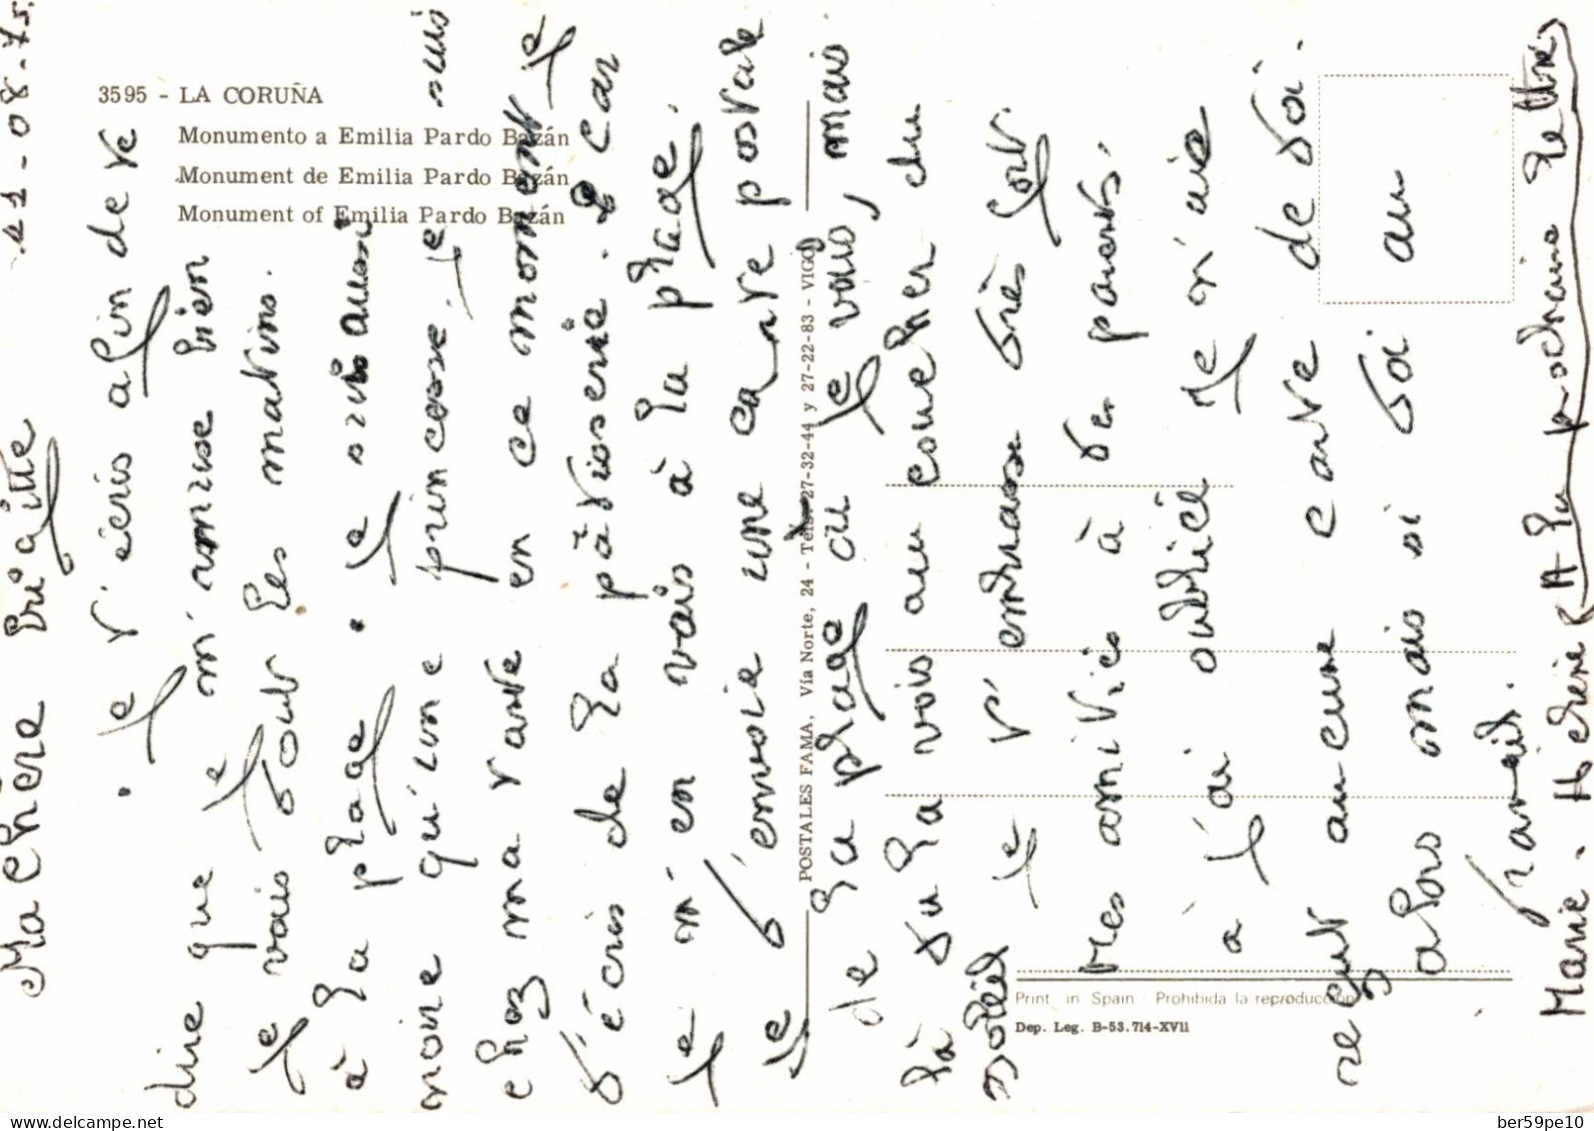 11-08-75.
Ma chère Brigitte
Je t'écris afin de te
dire que je m'amuse bien
Je vais tout les matins.
à la plage. Je suis aussi
noire qu'une princesse. Je suis
chez ma tante en ce moment Je
t'écris de la pâtisserie. Car
Je m'en vais à la plage.
Je t'envoie une carte postale
de la plage où je vais, mais
là tu la vois au coucher du
soleil Je t'embrasse très fort.
Mes amitiés à tes parents.
à j'ai oublié Je n'aie
reçut aucune carte de toi.
alors mais si toi au
Marie. Hélène (A la prochaine lettre)
3595 - LA CORUÑA
Monumento a Emilia Pardo Bazán
Monument de Emilia Pardo Bazán
Monument of Emilia Pardo Bazán
POSTALES FAMA, Vía Norte, 24 - Tels. 27-32-44 y 27-22-83 - VIGO
Print in Spain - Prohibida la reproducción
Dep. Leg. B-53.714-XVII
www.delcampe.net
ber59pe10